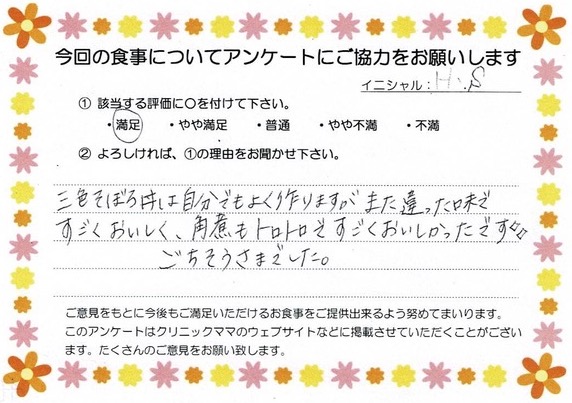 今回の食事についてアンケートにご協力をお願いします
イニシャル：H.S
① 該当する評価に○を付けて下さい。
・満足 ・やや満足 ・普通 ・やや不満 ・不満
② よろしければ、①の理由をお聞かせ下さい。
三色そぼろ丼は自分でもよく作りますが また違った味で
すごくおいしく、角煮もトロトロですごくおいしかったです
ごちそうさまでした。
ご意見をもとに今後もご満足いただけるお食事をご提供出来るよう努めてまいります。
このアンケートはクリニックママのウェブサイトなどに掲載させていただくことがござい
ます。たくさんのご意見をお願い致します。